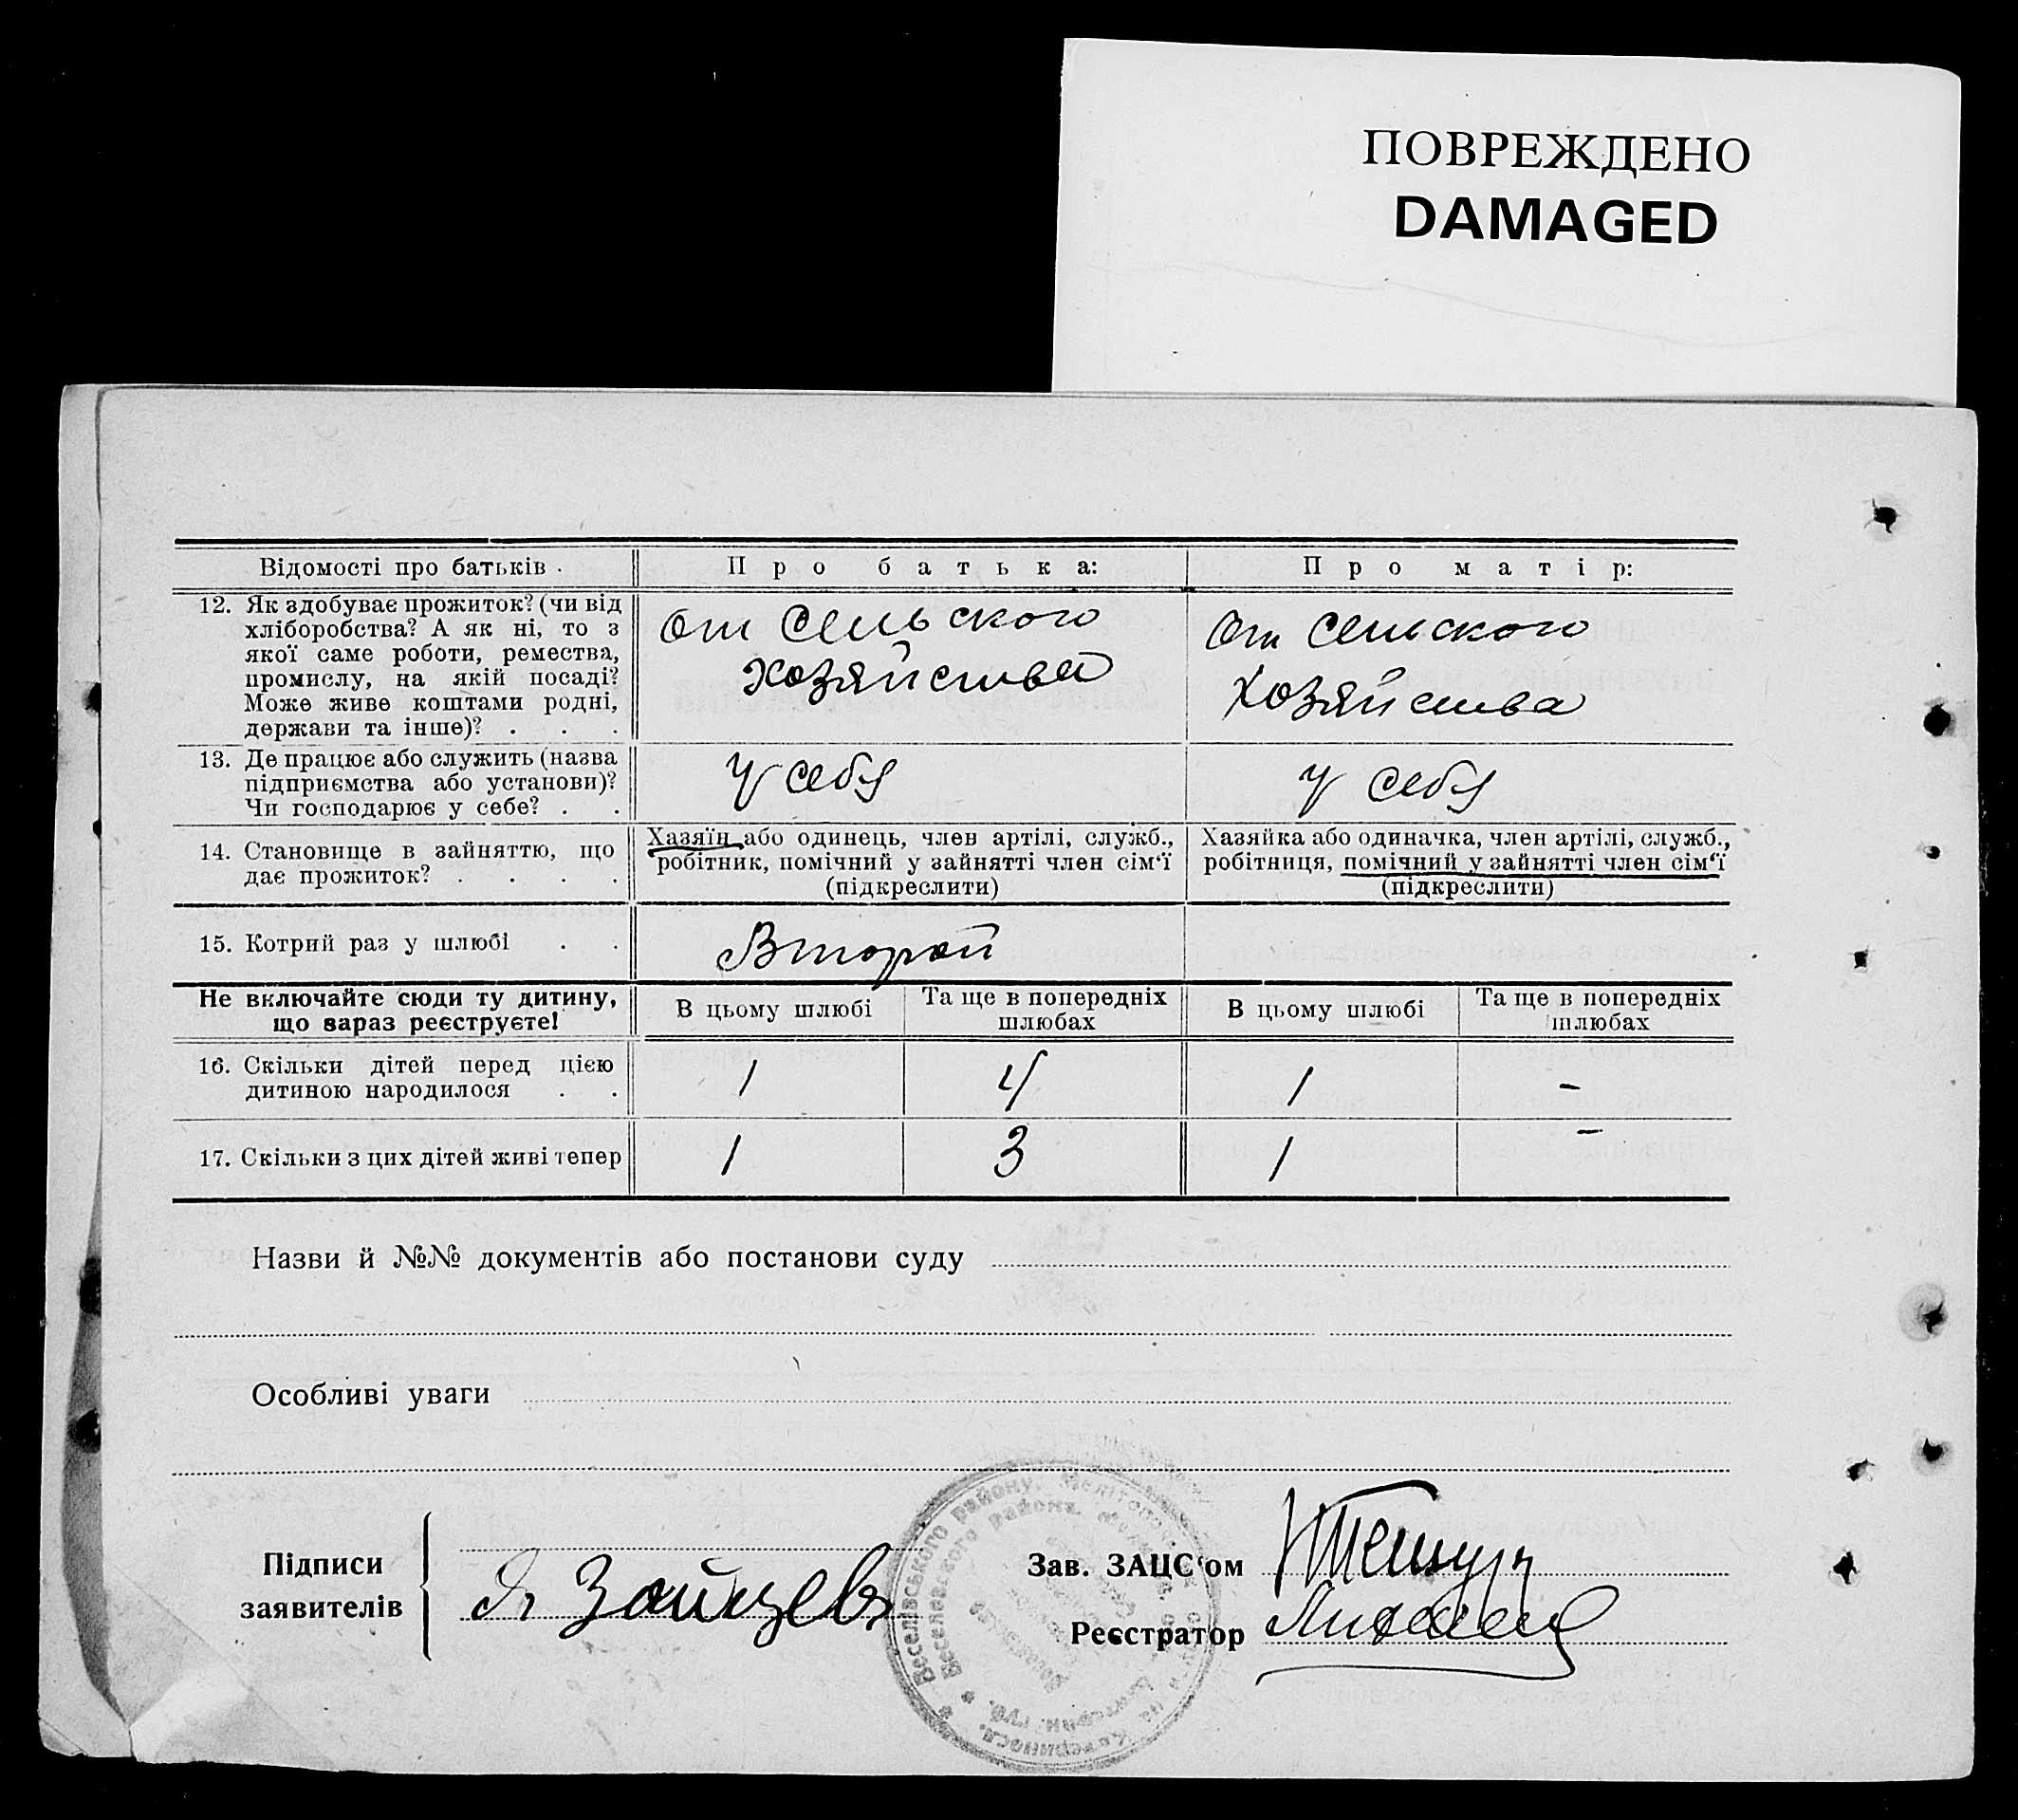 ПОВРЕЖДЕНО
DAMAGED
Відомості про батьків .
Про батька:
Про матір:
12. Як здобуває прожиток? (чи від
хліборобства? А як ні, то з
якої саме роботи, ремества,
промислу, на якій посаді?
Може живе коштами родні,
держави та інше)? . . .
От Сельского
Хозяйства
От Сельского
Хозяйства
13. Де працює або служить (назва
підприємства або установи)?
Чи господарює у себе? . .
У себя
У себя
14. Становище в зайняттю, що
дає прожиток? . . . .
Хазяїн або одинець, член артілі, служб.,
робітник, помічний у зайнятті член сім‘ї
(підкреслити)
Хазяйка або одиначка, член артілі, служб.,
робітниця, помічний у зайнятті член сім‘ї
(підкреслити)
15. Котрий раз у шлюбі . .
Второй
Не включайте сюди ту дитину,
що зараз реєструєте!
В цьому шлюбі
Та ще в попередніх
шлюбах
В цьому шлюбі
Та ще в попередніх
шлюбах
16. Скільки дітей перед цією
дитиною народилося . .
1
4
1
-
17. Скільки з цих дітей живі тепер
1
3
1
-
Назви й №№ документів або постанови суду
Особливі уваги
Підписи
заявителів
Я Зайцев
Зав. ЗАЦС‘ом
Реєстратор
Веселівського району, Мелітопольс
Веселевского района,
Катериносл.
Екатерин. губ.